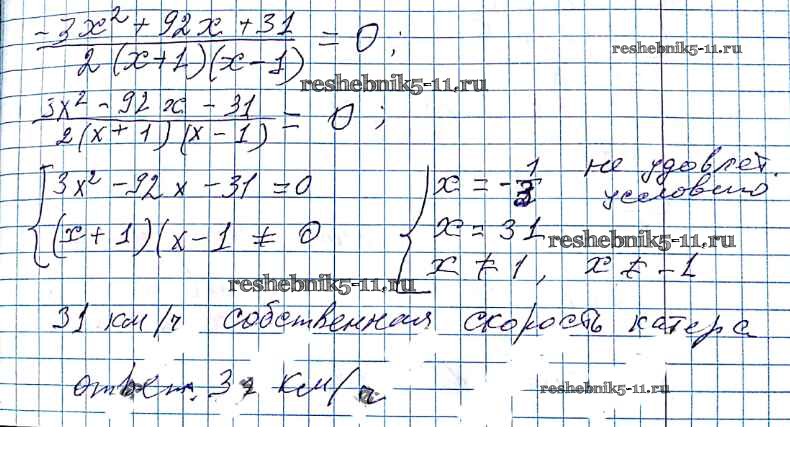 -3x² + 92x + 31 / 2(x+1)(x-1) = 0;
reshebnik5-11.ru
reshebnik5-11.ru
3x² - 92x - 31 / 2(x+1)(x-1) = 0;
3x² - 92x - 31 = 0
(x+1)(x-1 ≠ 0
x = -1/3 не удовлет. условию
x = 31
reshebnik5-11.ru
x ≠ 1, x ≠ -1
reshebnik5-11.ru
31 км/ч собственная скорость катера
ответ. 31 км/ч
reshebnik5-11.ru